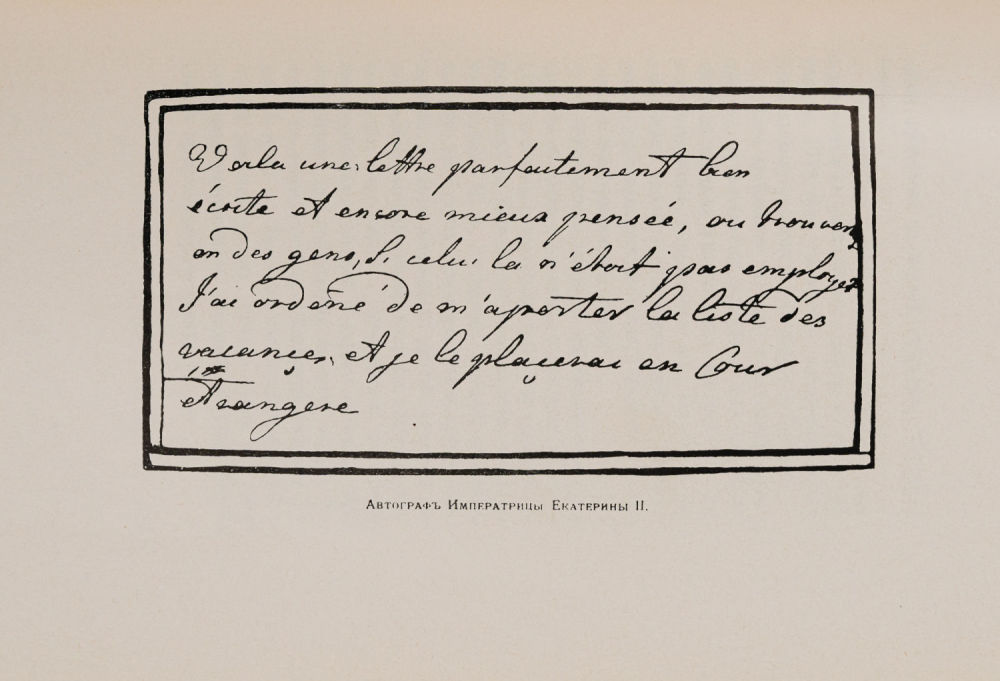 Voila une lettre parfaitement bien
écrite et encore mieux pensée, ou trouverez
on des gens, Si celui la n'étoit pas employez
J'ai ordené de m'aporter la liste des
vacançes, et je le plaçerai en Cour
etrangere
Автографъ Императрицы Екатерины II.